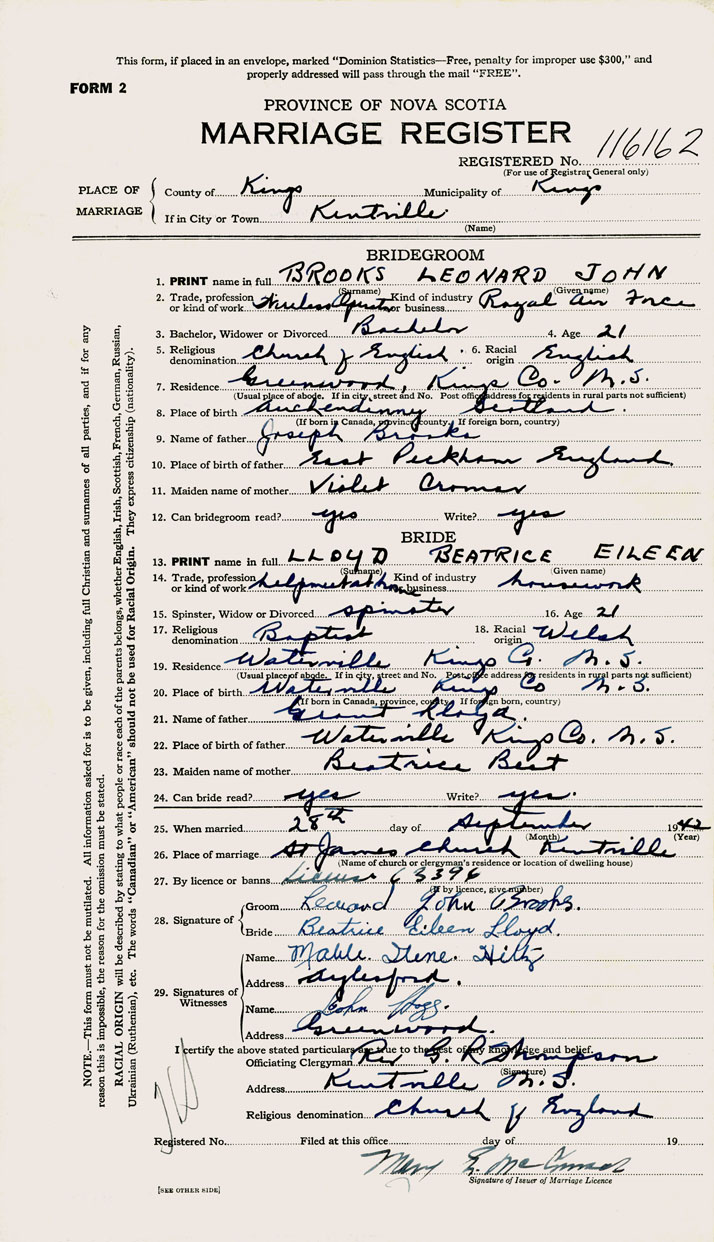 This form, if placed in an envelope, marked "Dominion Statistics—Free, penalty for improper use $300," and
properly addressed will pass through the mail "FREE".
FORM 2
PROVINCE OF NOVA SCOTIA
MARRIAGE REGISTER
REGISTERED No. 116162
(For use of Registrar General only)
PLACE OF MARRIAGE
County of Kings Municipality of Kings
If in City or Town Kentville
(Name)
BRIDEGROOM
1. PRINT name in full BROOKS LEONARD JOHN
(Surname) (Given name)
2. Trade, profession or kind of work Wireless Operator Kind of industry or business Royal Air Force
3. Bachelor, Widower or Divorced Bachelor 4. Age 21
5. Religious denomination Church of English 6. Racial origin English
7. Residence Greenwood, Kings Co. N.S.
(Usual place of abode. If in city, street and No. Post office address for residents in rural parts not sufficient)
8. Place of birth Auchendinny Scotland.
(If born in Canada, province, county. If foreign born, country)
9. Name of father Joseph Brooks
10. Place of birth of father East Peckham England.
11. Maiden name of mother Violet Cromer
12. Can bridegroom read? yes Write? yes
BRIDE
13. PRINT name in full LLOYD BEATRICE EILEEN
(Surname) (Given name)
14. Trade, profession or kind of work help meet at home Kind of industry or business housework
15. Spinster, Widow or Divorced spinster 16. Age 21
17. Religious denomination Baptist 18. Racial origin Welsh
19. Residence Waterville Kings Co. N.S.
(Usual place of abode. If in city, street and No. Post office address for residents in rural parts not sufficient)
20. Place of birth Waterville Kings Co N.S.
(If born in Canada, province, county. If foreign born, country)
21. Name of father Grant Lloyd.
22. Place of birth of father Waterville Kings Co. N.S.
23. Maiden name of mother Beatrice Best
24. Can bride read? yes Write? yes.
25. When married 28th day of September 1942
(Month) (Year)
26. Place of marriage St James Church Kentville
(Name of church or clergyman's residence or location of dwelling house)
27. By licence or banns License C 3396
(If by licence, give number)
28. Signature of
Groom Leonard John Brooks.
Bride Beatrice Eileen Lloyd.
29. Signatures of Witnesses
Name Mable Ilene Hiltz
Address Aylesford.
Name John Hogg.
Address Greenwood.
I certify the above stated particulars are true to the best of my knowledge and belief.
Officiating Clergyman Rev G. R. Thompson
(Signature)
Address Kentville N.S.
Religious denomination Church of England
Registered No. Filed at this office day of 19
Mary E.
Signature of Issuer of Marriage Licence
[SEE OTHER SIDE]
NOTE.—This form must not be mutilated. All information asked for is to be given, including full Christian and surnames of all parties, and if for any
reason this is impossible, the reason for the omission must be stated.
RACIAL ORIGIN will be described by stating to what people or race each of the parents belongs, whether English, Irish, Scottish, French, German, Russian,
Ukrainian (Ruthenian), etc. The words "Canadian" or "American" should not be used for Racial Origin. They express citizenship (nationality).